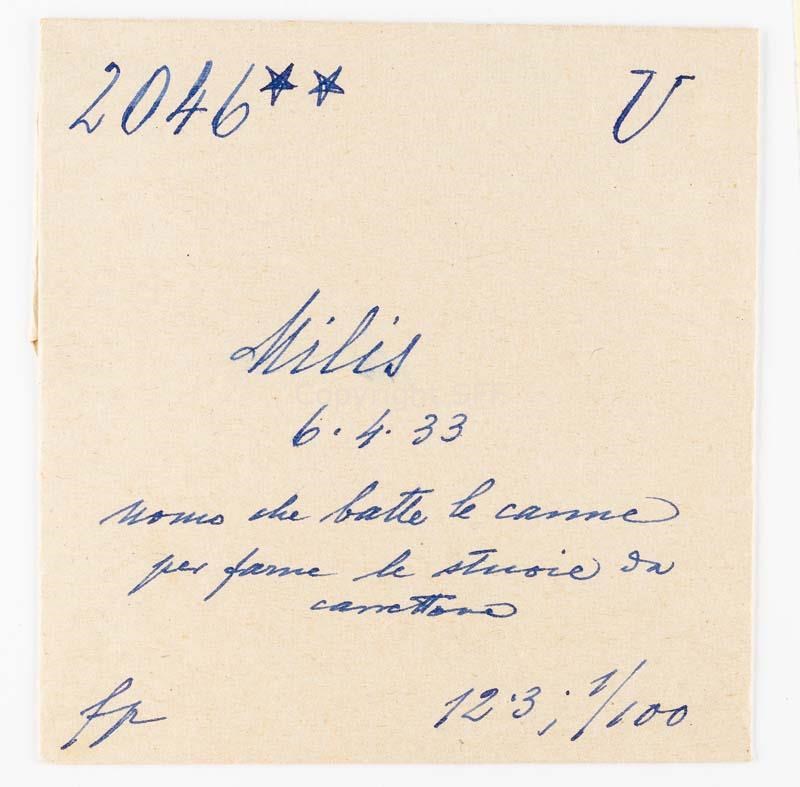 2046** V
Milis
6.4.33
uomo che batte le canne
per farne le stuoie da
carrettone
fp 12·3; 1/100